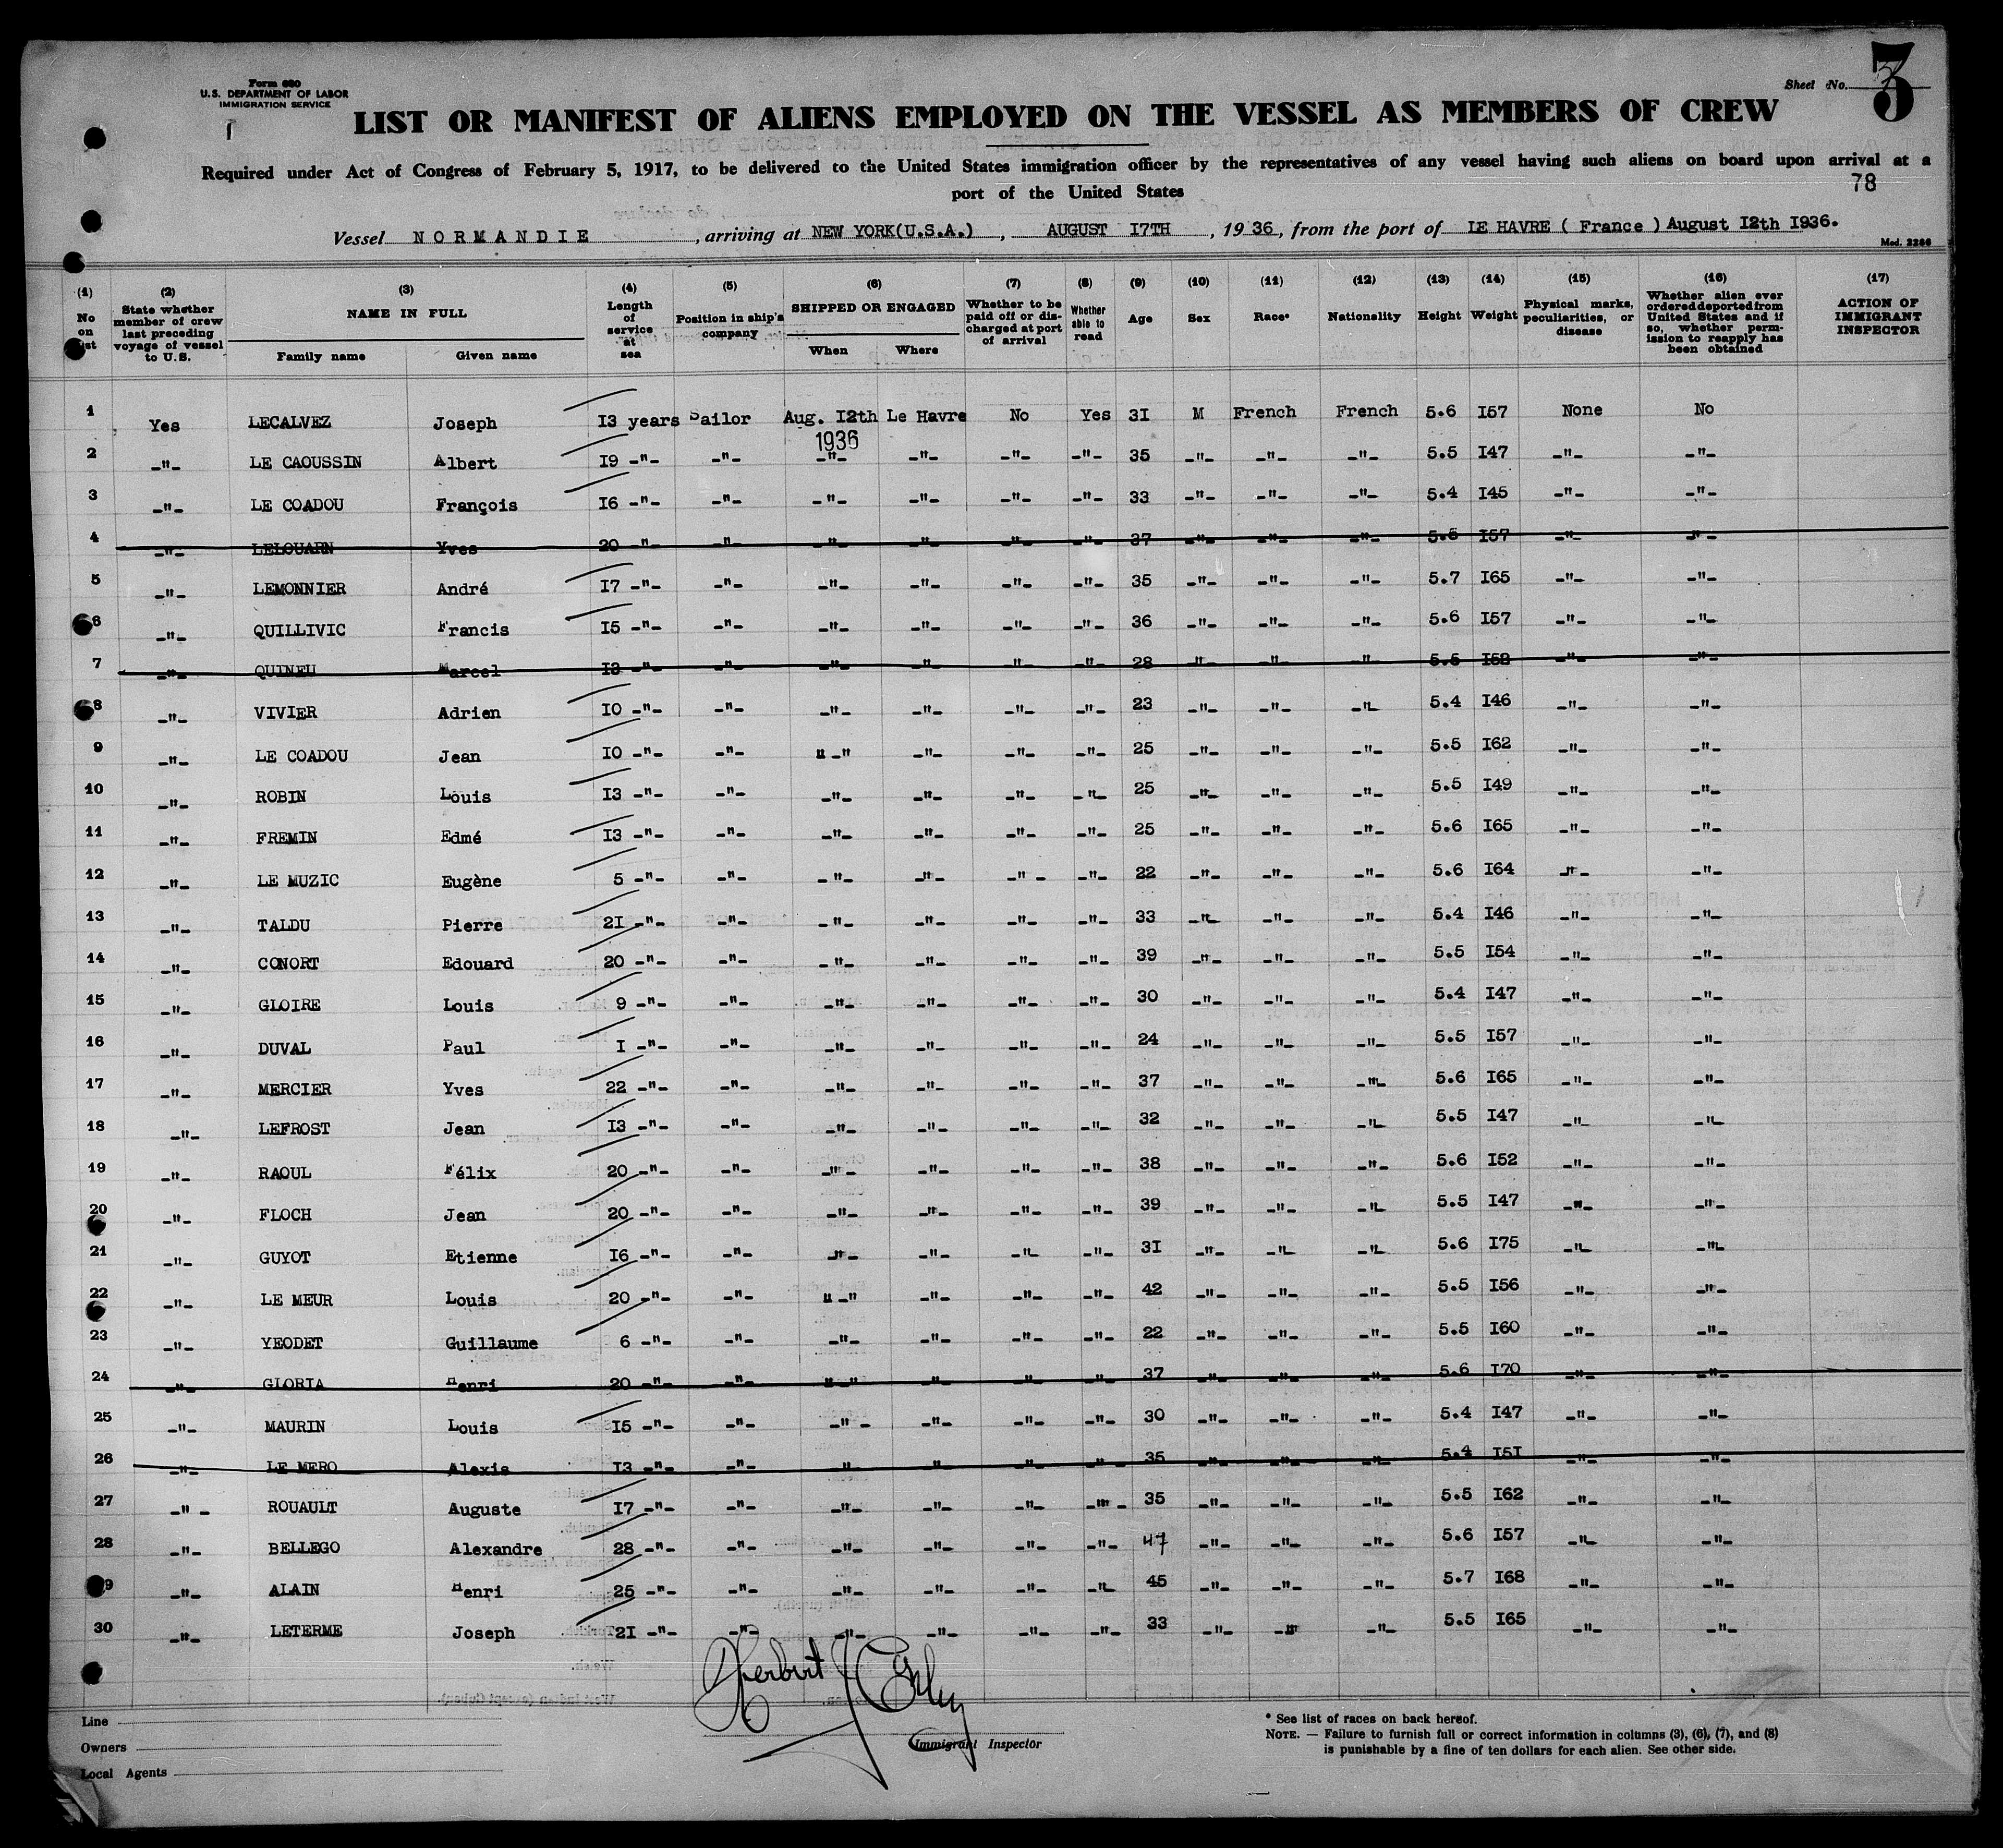 Form 680
U.S. DEPARTMENT OF LABOR
IMMIGRATION SERVICE
Sheet No. 3
LIST OR MANIFEST OF ALIENS EMPLOYED ON THE VESSEL AS MEMBERS OF CREW
Required under Act of Congress of February 5, 1917, to be delivered to the United States immigration officer by the representatives of any vessel having such aliens on board upon arrival at a
port of the United States
78
Vessel NORMANDIE, arriving at NEW YORK(U.S.A.), AUGUST I7TH, 1936, from the port of LE HAVRE ( France ) August I2th I936.
Mod. 2286
(1) No on list (2) State whether member of crew last preceding voyage of vessel to U.S. (3) NAME IN FULL Family name Given name (4) Length of service at sea (5) Position in ship's company (6) SHIPPED OR ENGAGED When Where (7) Whether to be paid off or discharged at port of arrival (8) Whether able to read (9) Age (10) Sex (11) Race* (12) Nationality (13) Height (14) Weight (15) Physical marks, peculiarities, or disease (16) Whether alien ever ordered deported from United States and if so, whether permission to reapply has been obtained (17) ACTION OF IMMIGRANT INSPECTOR
1 Yes LECALVEZ Joseph I3 years Sailor Aug. I2th 1936 Le Havre No Yes 3I M French French 5.6 I57 None No
2 -"- LE CAOUSSIN Albert I9 -"- -"- -"- -"- -"- -"- 35 -"- -"- -"- 5.5 I47 -"- -"-
3 -"- LE COADOU François I6 -"- -"- -"- -"- -"- -"- 33 -"- -"- -"- 5.4 I45 -"- -"-
4 -"- LELOUARN Yves 20 -"- -"- -"- -"- -"- -"- 37 -"- -"- -"- 5.6 I57 -"- -"-
5 -"- LEMONNIER André I7 -"- -"- -"- -"- -"- -"- 35 -"- -"- -"- 5.7 I65 -"- -"-
6 -"- QUILLIVIC Francis I5 -"- -"- -"- -"- -"- -"- 36 -"- -"- -"- 5.6 I57 -"- -"-
7 -"- QUINEU Marcel I3 -"- -"- -"- -"- -"- -"- 28 -"- -"- -"- 5.5 I52 -"- -"-
8 -"- VIVIER Adrien I0 -"- -"- -"- -"- -"- -"- 23 -"- -"- -"- 5.4 I46 -"- -"-
9 -"- LE COADOU Jean I0 -"- -"- " -" -"- -"- -"- 25 -"- -"- -"- 5.5 I62 -"- -"-
10 -"- ROBIN Louis I3 -"- -"- -"- -"- -"- -"- 25 -"- -"- -"- 5.5 I49 -"- -"-
11 -"- FREMIN Edmé I3 -"- -"- -"- -"- -"- -"- 25 -"- -"- -"- 5.6 I65 -"- -"-
12 -"- LE MUZIC Eugène 5 -"- -"- -"- -"- -"- -"- 22 -"- -"- -"- 5.6 I64 -"- -"-
13 -"- TALDU Pierre 2I -"- -"- -"- -"- -"- -"- 33 -"- -"- -"- 5.4 I46 -"- -"-
14 -"- CONORT Edouard 20 -"- -"- -"- -"- -"- -"- 39 -"- -"- -"- 5.5 I54 -"- -"-
15 -"- GLOIRE Louis 9 -"- -"- -"- -"- -"- -"- 30 -"- -"- -"- 5.4 I47 -"- -"-
16 -"- DUVAL Paul I -"- -"- -"- -"- -"- -"- 24 -"- -"- -"- 5.5 I57 -"- -"-
17 -"- MERCIER Yves 22 -"- -"- -"- -"- -"- -"- 37 -"- -"- -"- 5.6 I65 -"- -"-
18 -"- LEFROST Jean I3 -"- -"- -"- -"- -"- -"- 32 -"- -"- -"- 5.5 I47 -"- -"-
19 -"- RAOUL Félix 20 -"- -"- -"- -"- -"- -"- 38 -"- -"- -"- 5.6 I52 -"- -"-
20 -"- FLOCH Jean 20 -"- -"- -"- -"- -"- -"- 39 -"- -"- -"- 5.5 I47 -"- -"-
21 -"- GUYOT Etienne I6 -"- -"- -"- -"- -"- -"- 3I -"- -"- -"- 5.6 I75 -"- -"-
22 -"- LE MEUR Louis 20 -"- -"- " -" -"- -"- -"- 42 -"- -"- -"- 5.5 I56 -"- -"-
23 -"- YEODET Guillaume 6 -"- -"- -"- -"- -"- -"- 22 -"- -"- -"- 5.5 I60 -"- -"-
24 -"- GLORIA Henri 20 -"- -"- " -" -"- -"- -"- 37 -"- -"- -"- 5.6 I70 -"- -"-
25 -"- MAURIN Louis I5 -"- -"- -"- -"- -"- -"- 30 -"- -"- -"- 5.4 I47 -"- -"-
26 -"- LE MERO Alexis I3 -"- -"- -"- -"- -"- -"- 35 -"- -"- -"- 5.4 I5I -"- -"-
27 -"- ROUAULT Auguste I7 -"- -"- -"- -"- -"- -"- 35 -"- -"- -"- 5.5 I62 -"- -"-
28 -"- BELLEGO Alexandre 28 -"- -"- -"- -"- -"- -"- 47 -"- -"- -"- 5.6 I57 -"- -"-
29 -"- ALAIN Henri 25 -"- -"- -"- -"- -"- -"- 45 -"- -"- -"- 5.7 I68 -"- -"-
30 -"- LETERME Joseph 2I -"- -"- -"- -"- -"- -"- 33 -"- -"- -"- 5.5 I65 -"- -"-
Herbert
Immigrant Inspector
Line
Owners
Local Agents
* See list of races on back hereof.
NOTE. — Failure to furnish full or correct information in columns (3), (6), (7), and (8)
is punishable by a fine of ten dollars for each alien. See other side.